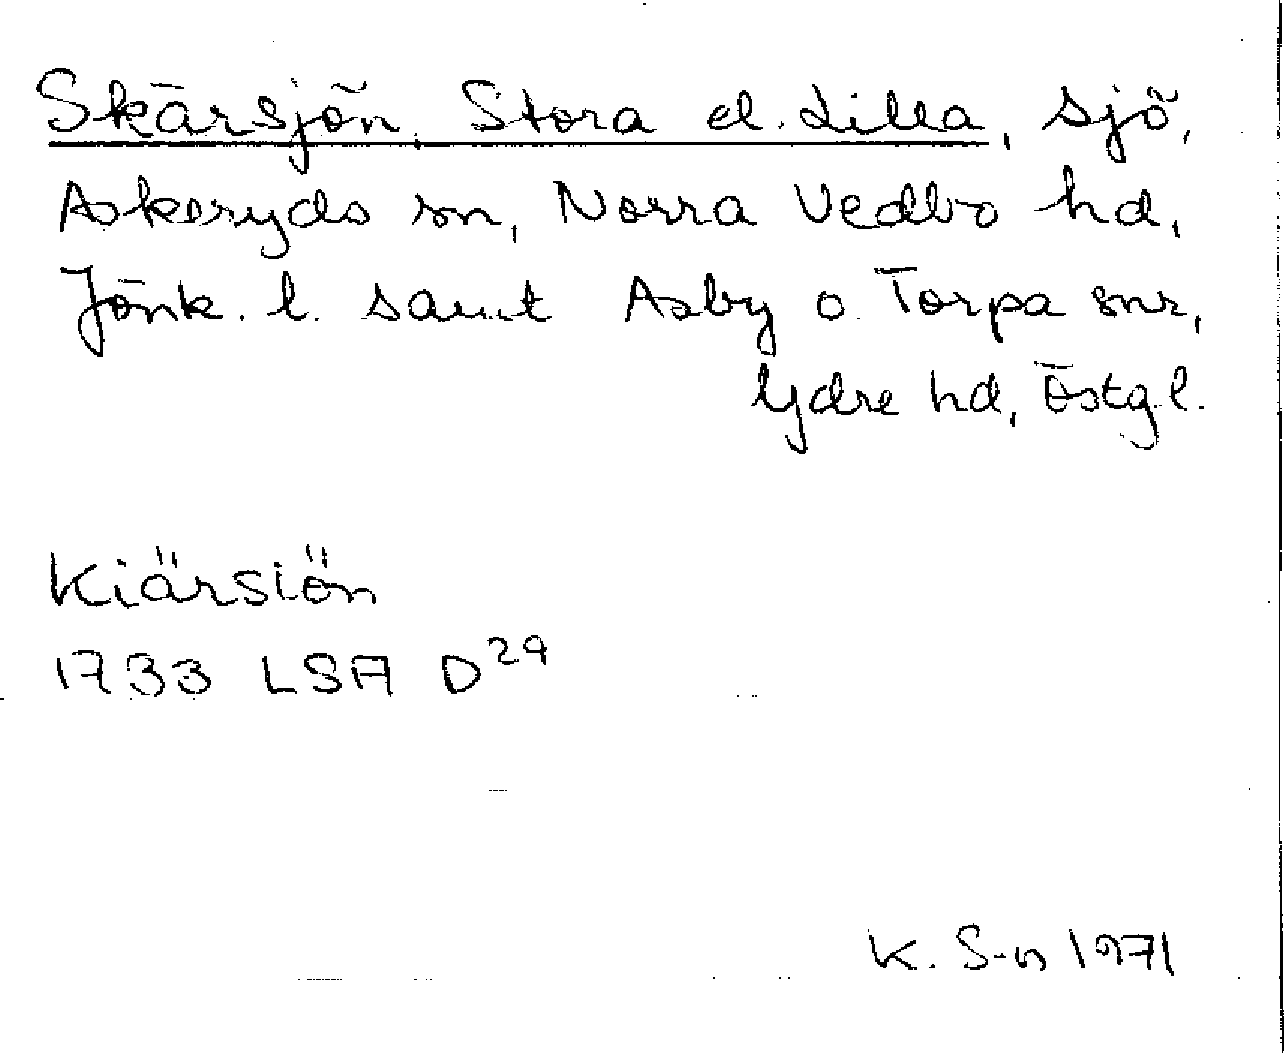 Skärsjön, Stora el. Lilla, sjö,
Askeryds sn, Norra Vedbo hd,
Jönk. l. samt Asby o. Torpa snr,
Ydre hd, Östgl.
Kiärsiön
1733 LSA D29
K. S-n 1971